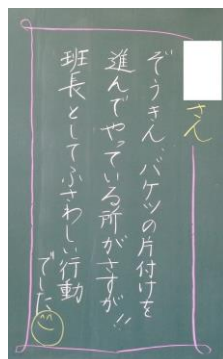 さん
ぞうきん、バケツの片付けを
進んでやっている所がさすが!!
班長としてふさわしい行動
でした